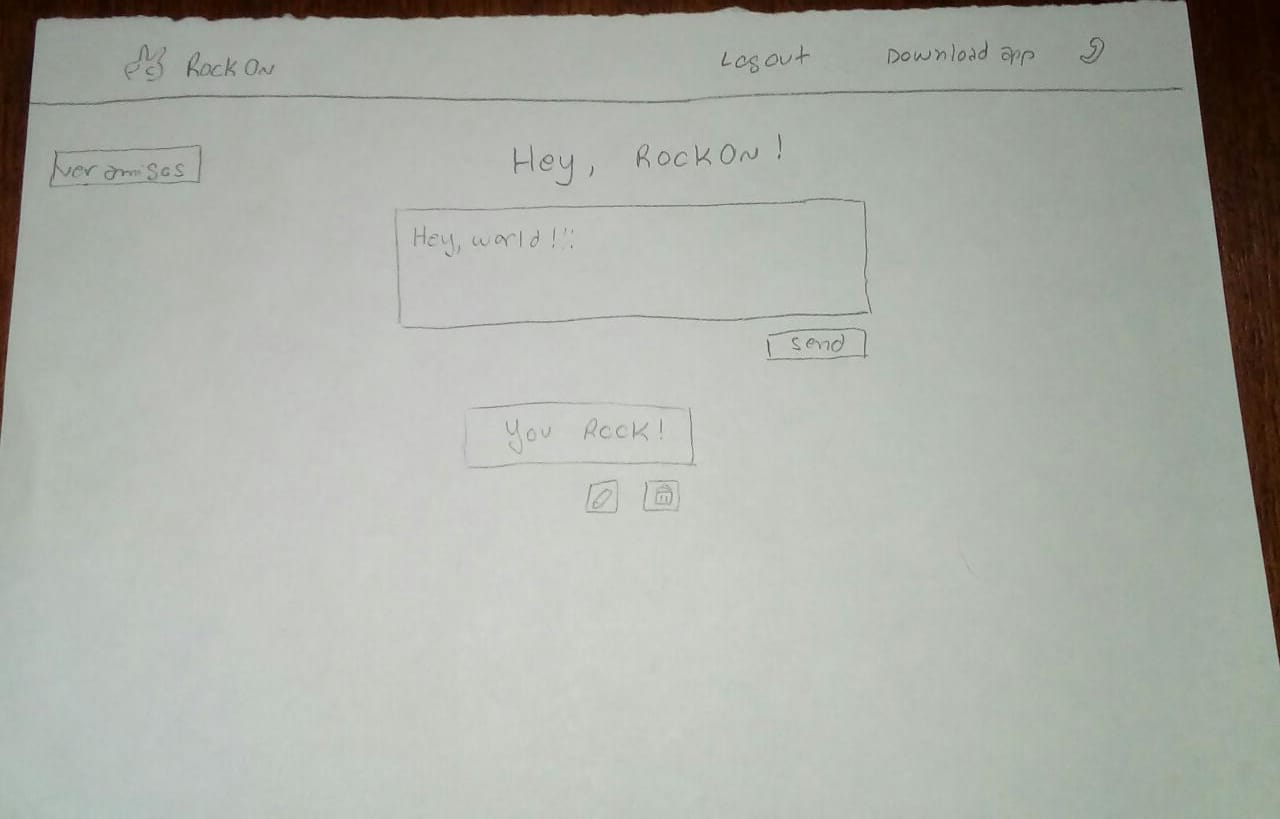 RockOn Logout Download app
Ver amigos
Hey, RockOn!
Hey, world!!!
Send
You Rock!